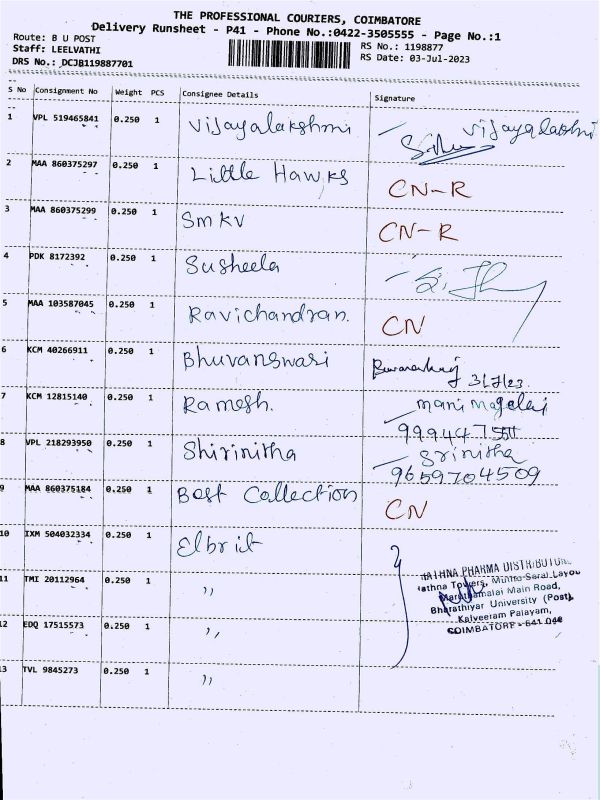 THE PROFESSIONAL COURIERS, COIMBATORE
Delivery Runsheet - P41 - Phone No.:0422-3505555 - Page No.:1
Route: B U POST RS No.: 1198877
Staff: LEELVATHI RS Date: 03-Jul-2023
DRS No.: DCJB119887701
S No Consignment No Weight PCS Consignee Details Signature
1 VPL 519465841 0.250 1 Vijayalakshmi Vijayalakshmi
2 MAA 860375297 0.250 1 Little Hawks CN-R
3 MAA 860375299 0.250 1 Smkv CN-R
4 PDK 8172392 0.250 1 Susheela
5 MAA 103587045 0.250 1 Ravichandran. CN
6 KCM 40266911 0.250 1 Bhuvanswari 3/7/23
7 KCM 12815140 0.250 1 Ramesh.
8 VPL 218293950 0.250 1 Shirinitha Srinitha
9659704509
9 MAA 860375184 0.250 1 Best Collection CN
10 IXM 504032334 0.250 1 Elbrit
11 TMI 20112964 0.250 1 ,,
12 EDQ 17515573 0.250 1 ,,
13 TVL 9845273 0.250 1 ,,
PHARMA DISTRIBUTOR
Towers,
Maruthamalai Main Road,
Bharathiyar University (Post),
Kalveeram Palayam,
COIMBATORE - 641 046